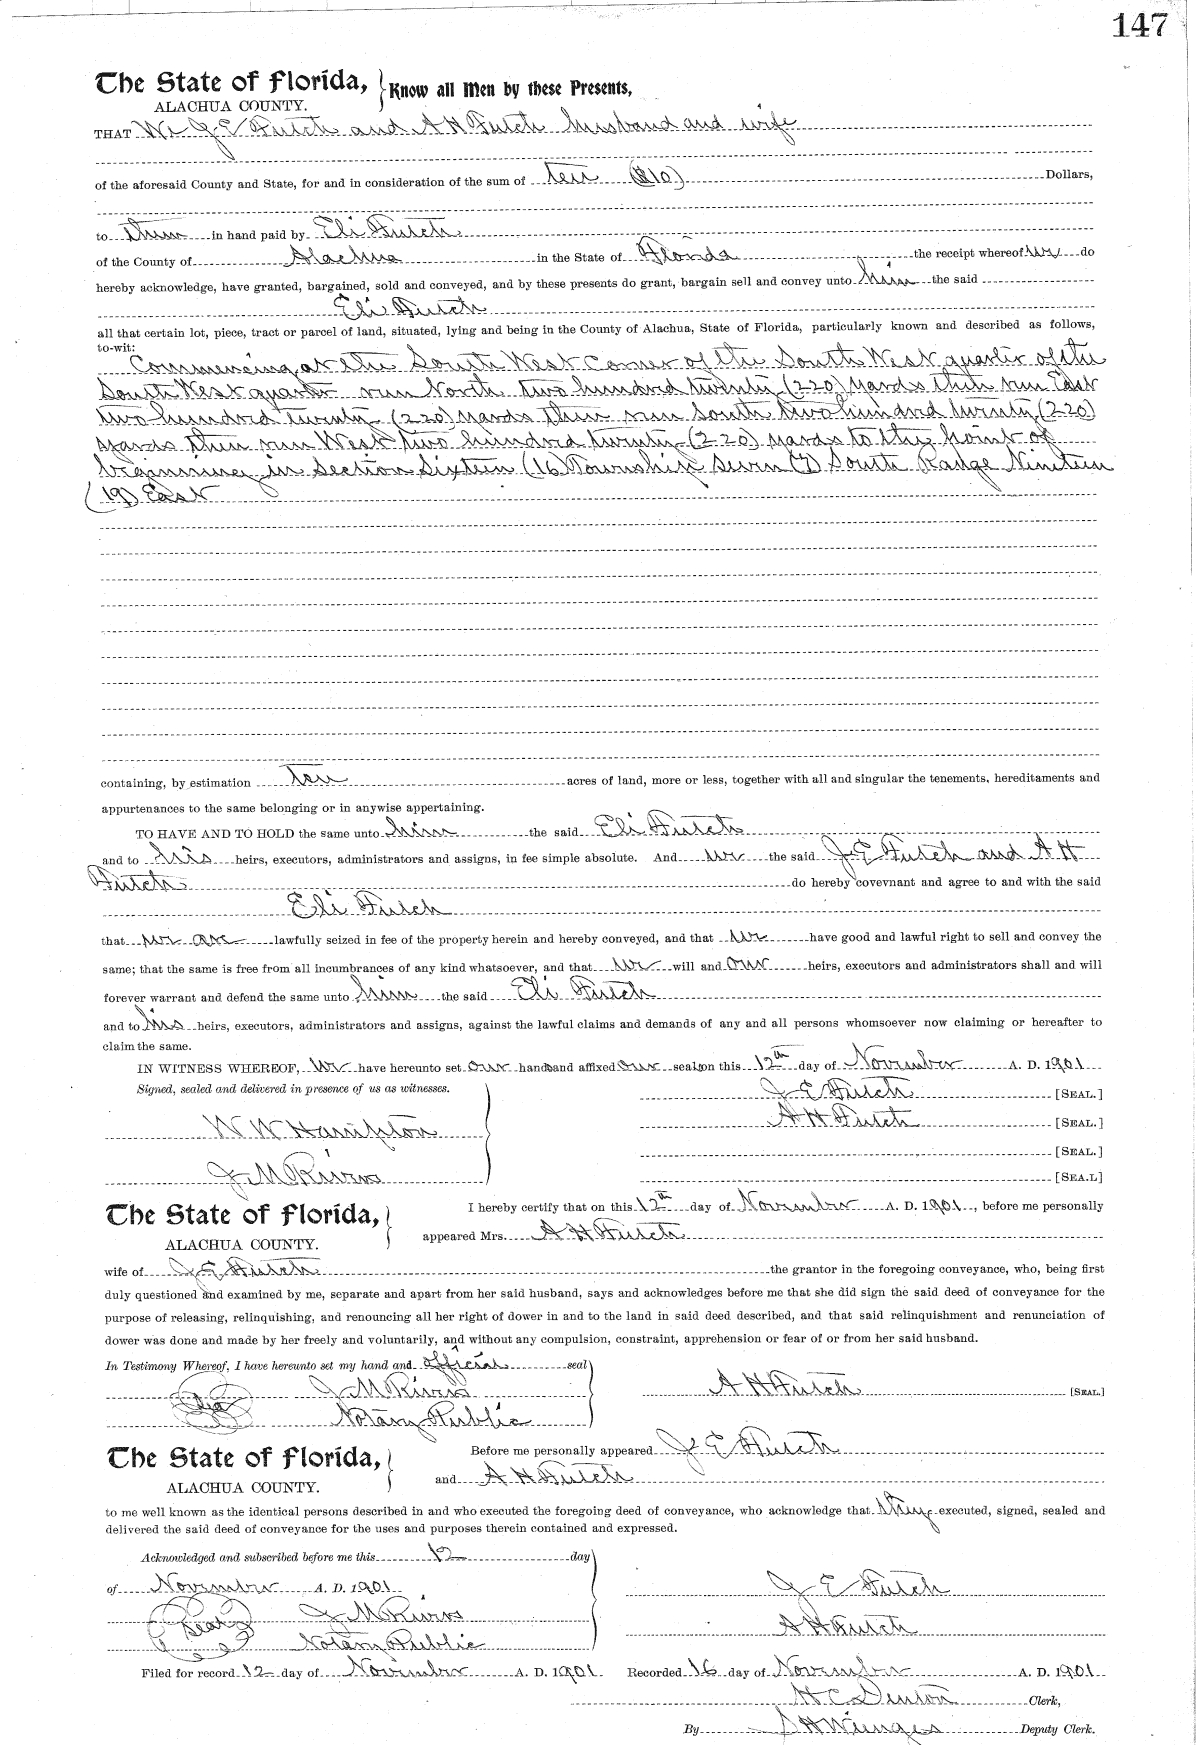 147
The State of Florida, Know all Men by these Presents,
ALACHUA COUNTY.
THAT We J E Futch and A H Futch husband and wife
of the aforesaid County and State, for and in consideration of the sum of ten ($10) Dollars,
to them in hand paid by Eli Futch
of the County of Alachua in the State of Florida the receipt whereof we do
hereby acknowledge, have granted, bargained, sold and conveyed, and by these presents do grant, bargain sell and convey unto him the said
Eli Futch
all that certain lot, piece, tract or parcel of land, situated, lying and being in the County of Alachua, State of Florida, particularly known and described as follows,
to-wit:
Commencing at the South West Corner of the South West quarter of the
South West quarter run North two hundred twenty (220) yards then run East
two hundred twenty (220) yards then run South two hundred twenty (220)
yards then run West two hundred twenty (220) yards to the point of
beginning in Section Sixteen (16) Township Seven (7) South Range Nineteen
(19) East
containing, by estimation ten acres of land, more or less, together with all and singular the tenements, hereditaments and
appurtenances to the same belonging or in anywise appertaining.
TO HAVE AND TO HOLD the same unto him the said Eli Futch
and to his heirs, executors, administrators and assigns, in fee simple absolute. And we the said J E Futch and A H
Futch do hereby covevnant and agree to and with the said
Eli Futch
that we are lawfully seized in fee of the property herein and hereby conveyed, and that we have good and lawful right to sell and convey the
same; that the same is free from all incumbrances of any kind whatsoever, and that we will and our heirs, executors and administrators shall and will
forever warrant and defend the same unto him the said Eli Futch
and to his heirs, executors, administrators and assigns, against the lawful claims and demands of any and all persons whomsoever now claiming or hereafter to
claim the same.
IN WITNESS WHEREOF, we have hereunto set our hands and affixed our seals on this 12th day of November A. D. 1901
Signed, sealed and delivered in presence of us as witnesses. J E Futch [SEAL.]
A H Futch [SEAL.]
W W Hampton
[SEAL.]
J M Rivers [SEA.L]
The State of Florida, I hereby certify that on this 12th day of November A. D. 1901, before me personally
ALACHUA COUNTY. appeared Mrs. A H Futch
wife of J E Futch the grantor in the foregoing conveyance, who, being first
duly questioned and examined by me, separate and apart from her said husband, says and acknowledges before me that she did sign the said deed of conveyance for the
purpose of releasing, relinquishing, and renouncing all her right of dower in and to the land in said deed described, and that said relinquishment and renunciation of
dower was done and made by her freely and voluntarily, and without any compulsion, constraint, apprehension or fear of or from her said husband.
In Testimony Whereof, I have hereunto set my hand and official seal
J M Rivers A H Futch [SEAL.]
Notary Public
The State of Florida, Before me personally appeared J E Futch
ALACHUA COUNTY. and A H Futch
to me well known as the identical persons described in and who executed the foregoing deed of conveyance, who acknowledge that they executed, signed, sealed and
delivered the said deed of conveyance for the uses and purposes therein contained and expressed.
Acknowledged and subscribed before me this 12 day
of November A. D. 1901 J E Futch
Seal J M Rivers A H Futch
Notary Public
Filed for record 12 day of November A. D. 1901 Recorded 16 day of November A. D. 1901
H C Denton Clerk,
By S H Wienges Deputy Clerk.